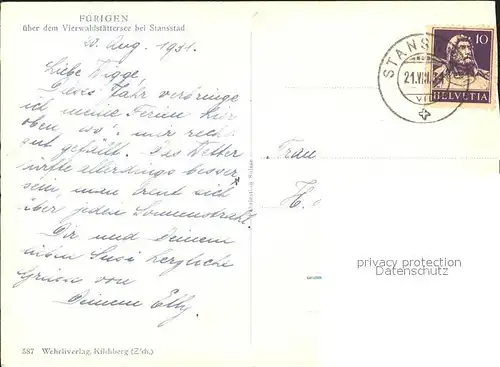 FÜRIGEN
über dem Vierwaldstättersee bei Stansstad
20. Aug. 1931.
Liebe Wigge,
Dieses Jahr verbringe
ich meine Ferien hier
oben, wo's mir recht
gut gefällt. Das Wetter
dürfte allerdings besser
sein, man freut sich
über jeden Sonnenstrahl.
Dir und Deinem
lieben Susi herzliche
Grüsse von
Deinem Elly.
587 Wehrliverlag, Kilchberg (Zch.)
STANSS
21.VIII.31
10
HELVETIA
Frau
H.
privacy protection
Datenschutz